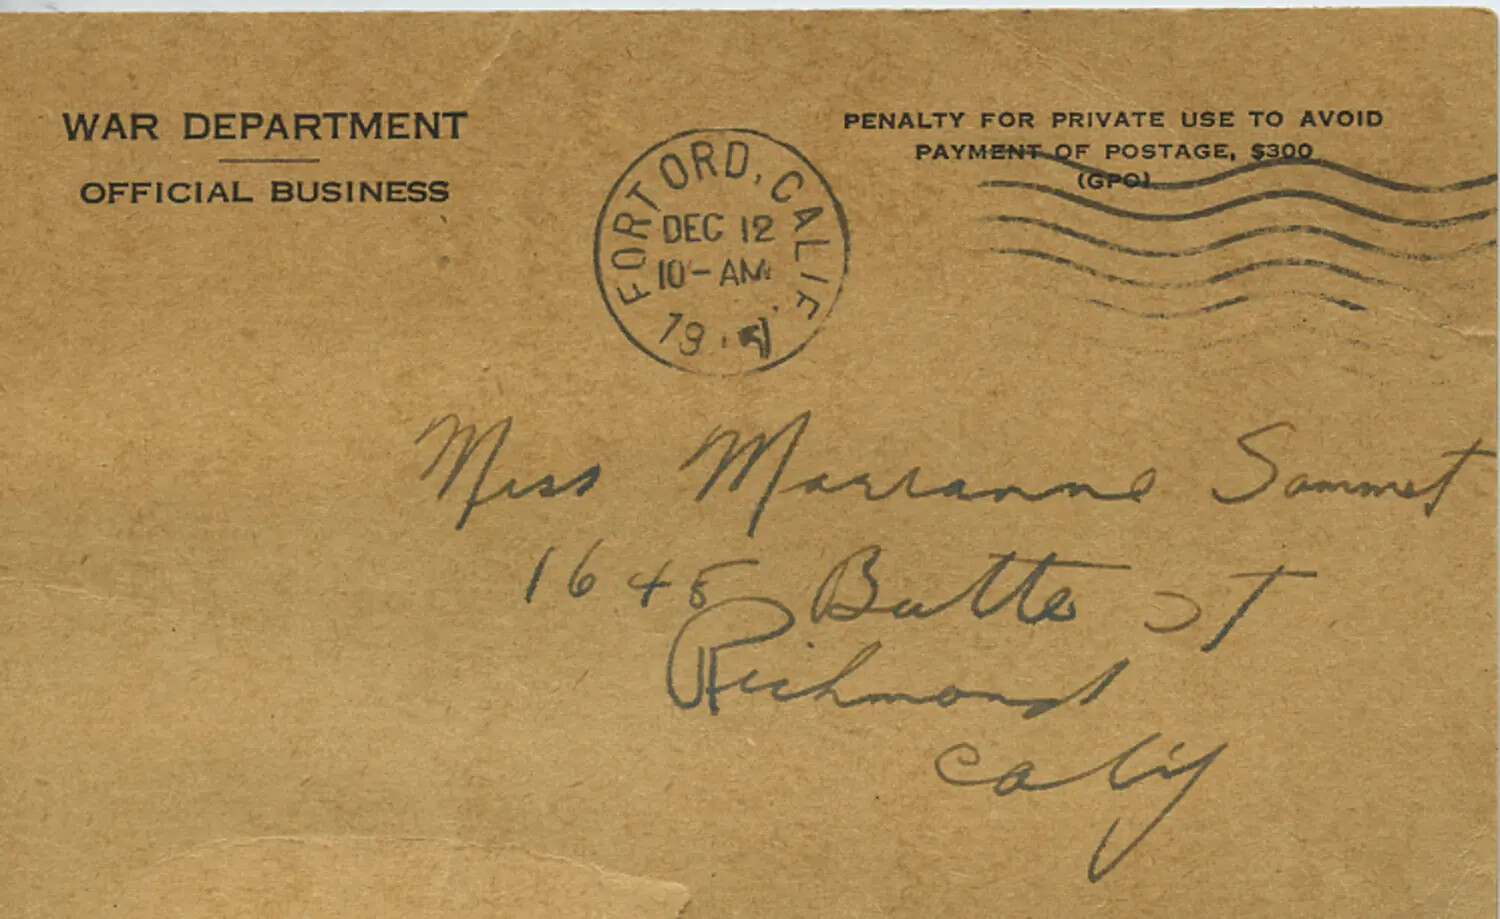 WAR DEPARTMENT
OFFICIAL BUSINESS
PENALTY FOR PRIVATE USE TO AVOID
PAYMENT OF POSTAGE, $300
(GPO)
FORT ORD, CALIF.
DEC 12
10-AM
Miss Marianne Sammet
1645 Butte St
Richmond
Calif